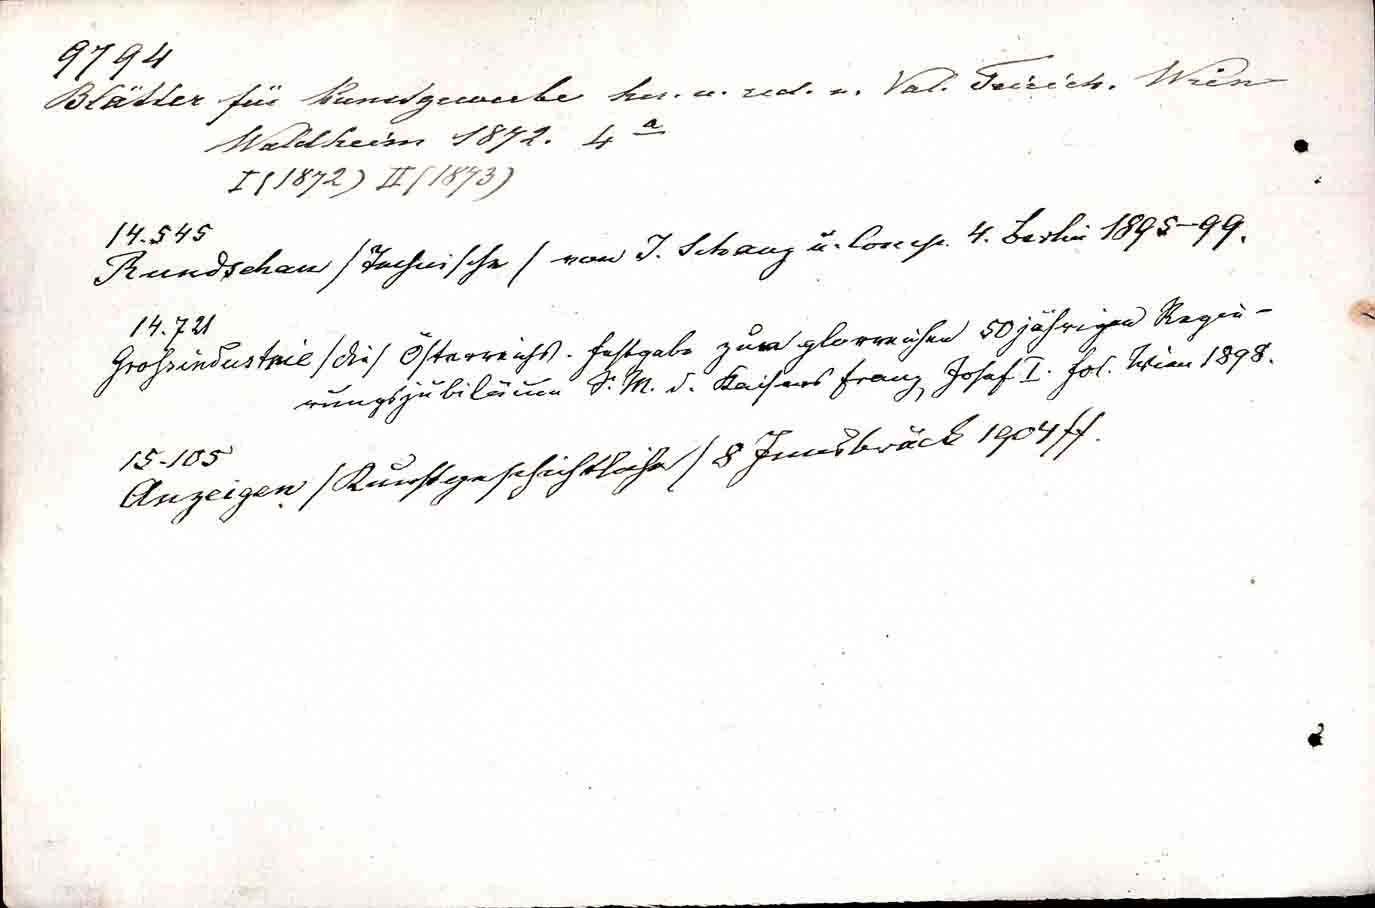 9794
Blätter für Kunstgewerbe her. u. red. v. Val. Teirich. Wien
Waldheim 1872. 4º
I (1872) II (1873)
14.545
Rundschau / Technische / von J. Schanz u. Comp. 4. Berlin 1895-99.
14.721
Grossindustrie / die / Österreichs. Festgabe zum glorreichen 50jährigen Regie-
rungsjubiläum S. M. d. Kaisers Franz Josef I. fol. Wien 1898.
15.105
Anzeigen / Kunstgeschichtliche / 8 Innsbruck 1904 ff.